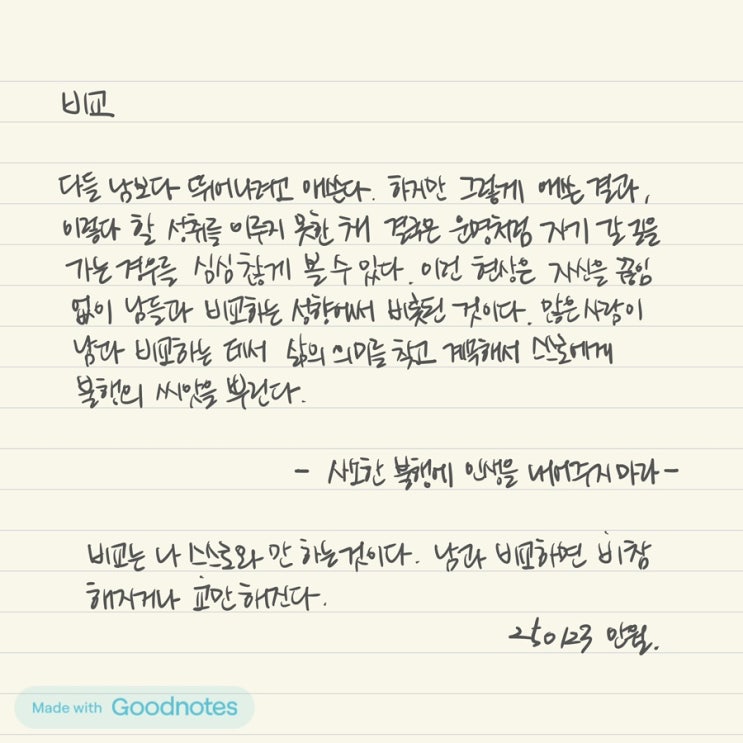 비교
다들 남보다 뛰어나려고 애쓴다. 하지만 그렇게 애쓴 결과,
이렇다 할 성취를 이루지 못한 채 결국은 운명처럼 자기 갈 길을
가는 경우를 심심찮게 볼 수 있다. 이런 현상은 자신을 끊임
없이 남들과 비교하는 성향에서 비롯된 것이다. 많은 사람이
남과 비교하는 데서 삶의 의미를 찾고 계속해서 스스로에게
불행의 씨앗을 뿌린다.
- 사소한 불행에 인생을 내어주지 마라 -
비교는 나 스스로와만 하는 것이다. 남과 비교하면 비참
해지거나 교만해진다.
250123
Made with Goodnotes